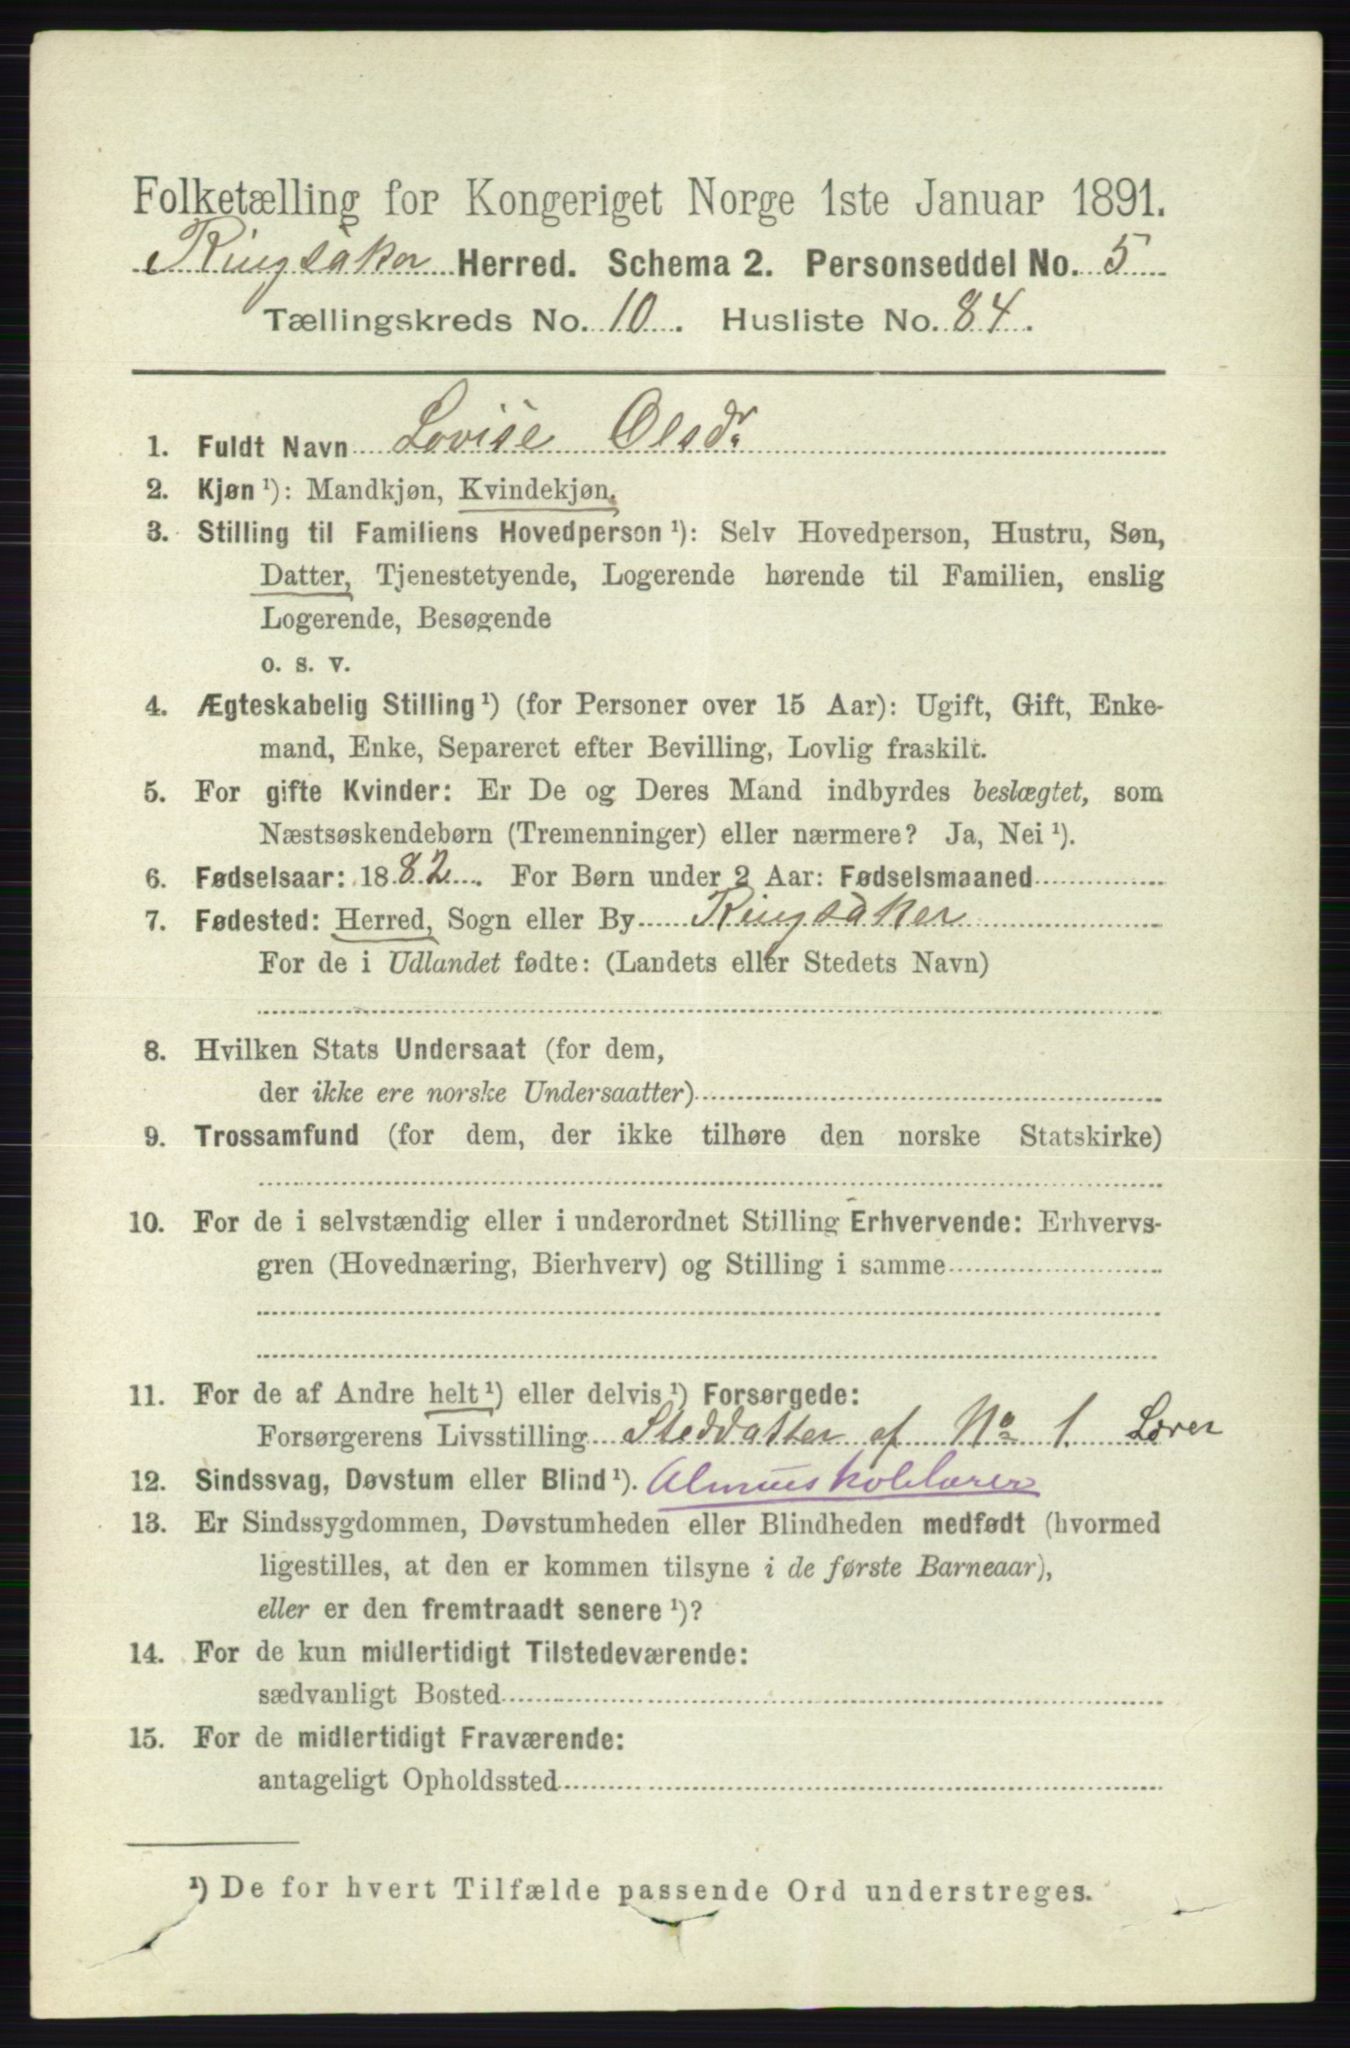 Folketælling for Kongeriget Norge 1ste Januar 1891.
Ringsaker Herred. Schema 2. Personseddel No. 5
Tællingskreds No. 10. Husliste No. 84.
1. Fuldt Navn Lovise Olsdr.
2. Kjøn ¹): Mandkjøn, Kvindekjøn.
3. Stilling til Familiens Hovedperson ¹): Selv Hovedperson, Hustru, Søn,
Datter, Tjenestetyende, Logerende hørende til Familien, enslig
Logerende, Besøgende
o. s. v.
4. Ægteskabelig Stilling ¹) (for Personer over 15 Aar): Ugift, Gift, Enke-
mand, Enke, Separeret efter Bevilling, Lovlig fraskilt.
5. For gifte Kvinder: Er De og Deres Mand indbyrdes beslægtet, som
Næstsøskendebørn (Tremenninger) eller nærmere? Ja, Nei ¹).
6. Fødselsaar: 1882. For Børn under 2 Aar: Fødselsmaaned
7. Fødested: Herred, Sogn eller By Ringsaker
For de i Udlandet fødte: (Landets eller Stedets Navn)
8. Hvilken Stats Undersaat (for dem,
der ikke ere norske Undersaatter)
9. Trossamfund (for dem, der ikke tilhøre den norske Statskirke)
10. For de i selvstændig eller i underordnet Stilling Erhvervende: Erhvervs-
gren (Hovednæring, Bierhverv) og Stilling i samme
11. For de af Andre helt ¹) eller delvis ¹) Forsørgede:
Forsørgerens Livsstilling Steddatter af No 1.
12. Sindssvag, Døvstum eller Blind ¹).
13. Er Sindssygdommen, Døvstumheden eller Blindheden medfødt (hvormed
ligestilles, at den er kommen tilsyne i de første Barneaar),
eller er den fremtraadt senere ¹)?
14. For de kun midlertidigt Tilstedeværende:
sædvanligt Bosted
15. For de midlertidigt Fraværende:
antageligt Opholdssted
¹) De for hvert Tilfælde passende Ord understreges.